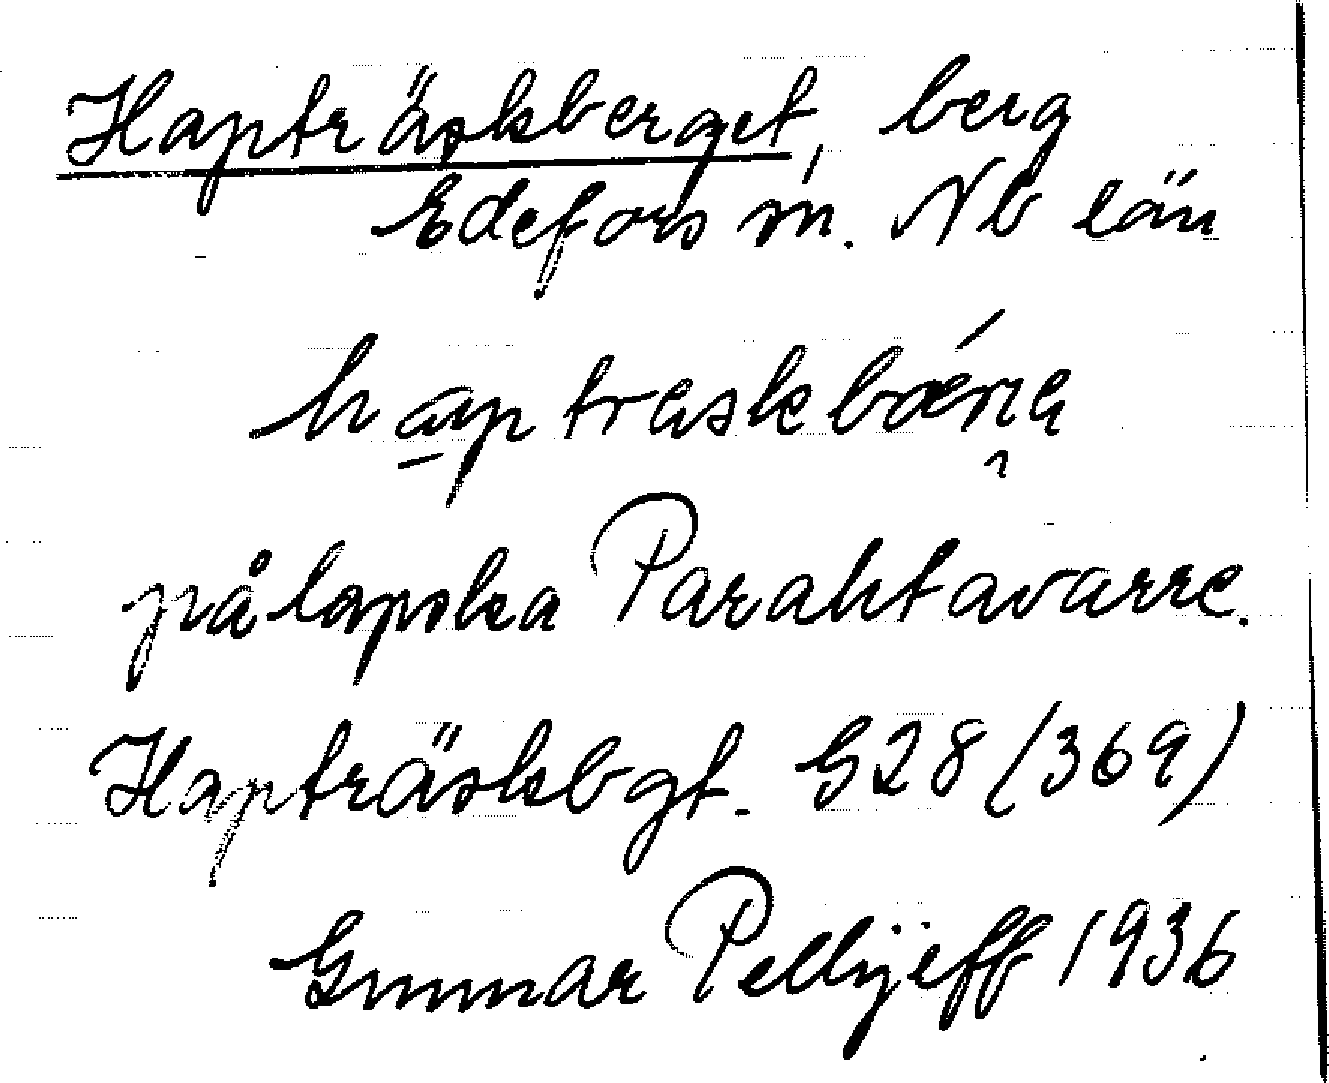 Hapträskberget, berg
Edefors sn. Nb län
haptraskbærıe
på lapska Parahtavarre.
Hapträskbgt. G28 (369)
Gunnar Pellijeff 1936